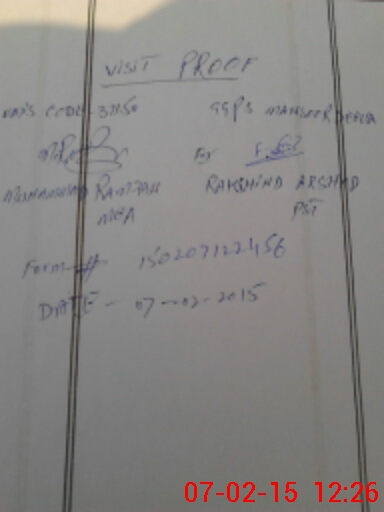 VISIT PROOF
EMIS CODE - 31150 GGPS MANSOOR DEHRA
For
MUHAMMAD RAMZAN RAKHSHIND ARSHAD
MEA PST
Form # 150207122456
DATE - 07-02-2015
07-02-15 12:26